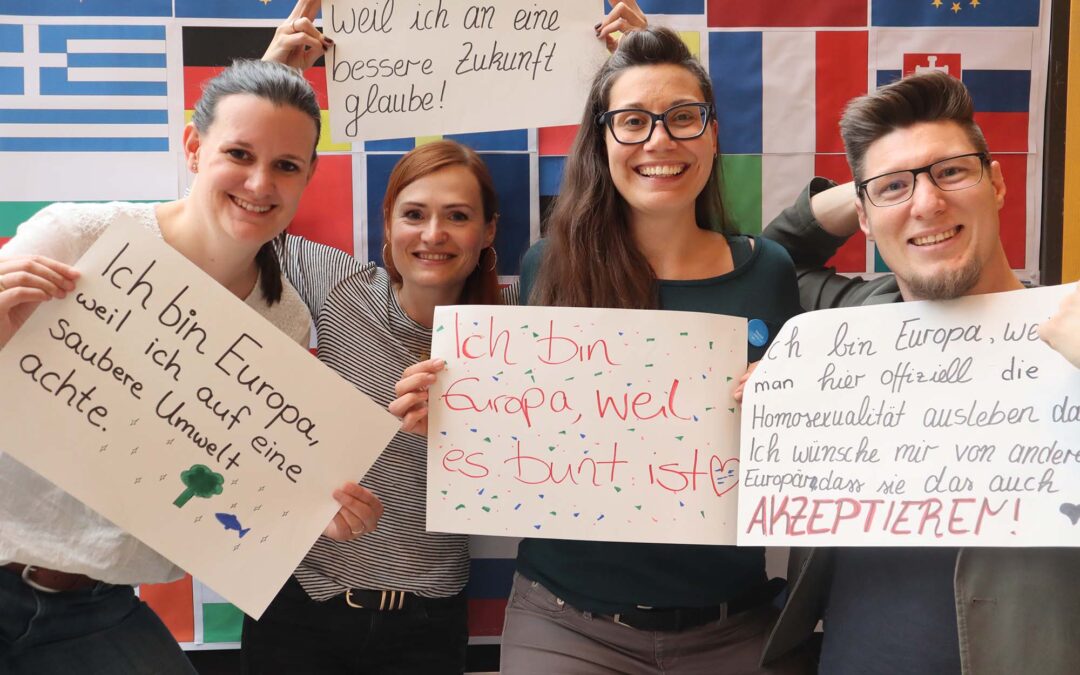 Weil ich an eine
bessere Zukunft
glaube!
Ich bin Europa,
weil ich auf eine
saubere Umwelt
achte.
Ich bin
Europa, weil
es bunt ist
ch bin Europa, wei
man hier offiziell die
Homosexualität ausleben da
Ich wünsche mir von andere
Europäer, dass sie das auch
AKZEPTIEREN!